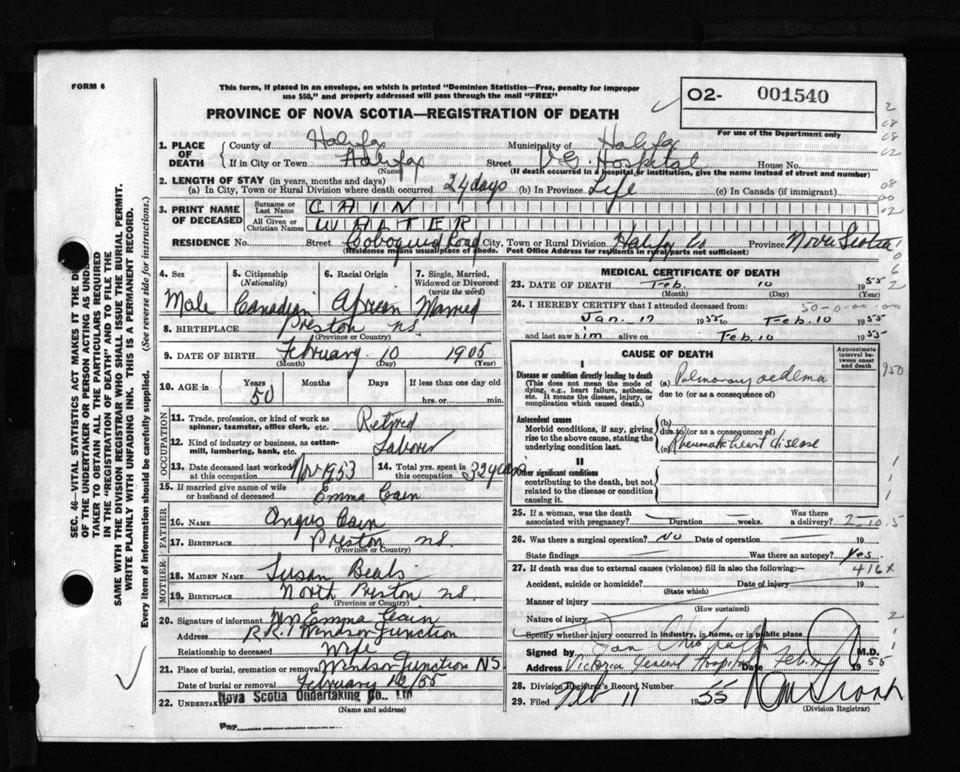 FORM 6
This form, if placed in an envelope, on which is printed "Dominion Statistics—Free, penalty for improper
use $50," and properly addressed will pass through the mail "FREE"
PROVINCE OF NOVA SCOTIA—REGISTRATION OF DEATH
O2- 001540
For use of the Department only
1. PLACE OF DEATH
County of Halifax Municipality of Halifax
If in City or Town Halifax Street V.G. Hospital House No.
(Name) (If death occurred in hospital or institution, give the name instead of street and number)
2. LENGTH OF STAY (in years, months and days)
(a) In City, Town or Rural Division where death occurred 24 days (b) In Province Life (c) In Canada (if immigrant)
3. PRINT NAME OF DECEASED
Surname or Last Name CAIN
All Given or Christian Names WALTER
RESIDENCE No. Street Cobequid Road City, Town or Rural Division Halifax Co Province Nova Scotia
(Residence means usual place of abode. Post Office Address for residents in rural parts not sufficient)
4. Sex Male
5. Citizenship (Nationality) Canadian
6. Racial Origin African
7. Single, Married, Widowed or Divorced (write the word) Married
8. BIRTHPLACE Preston N.S.
(Province or Country)
9. DATE OF BIRTH February 10 1905
(Month) (Day) (Year)
10. AGE in Years 50 Months Days If less than one day old
hrs. or min.
OCCUPATION
11. Trade, profession, or kind of work as spinner, teamster, office clerk, etc. Retired
12. Kind of industry or business, as cotton-mill, lumbering, bank, etc. Labourer
13. Date deceased last worked at this occupation Nov 1953
14. Total yrs. spent in this occupation 32 years
15. If married give name of wife or husband of deceased Emma Cain
FATHER
16. NAME Angus Cain
17. BIRTHPLACE Preston N.S.
(Province or Country)
MOTHER
18. MAIDEN NAME Susan Beals
19. BIRTHPLACE North Preston N.S.
(Province or Country)
20. Signature of informant Mrs Emma Cain
Address R.R. 1 Windsor Junction
Relationship to deceased Wife
21. Place of burial, cremation or removal Windsor Junction N.S.
Date of burial or removal February 12/55
22. UNDERTAKER Nova Scotia Undertaking Co., Ltd
(Name and address)
Per
MEDICAL CERTIFICATE OF DEATH
23. DATE OF DEATH Feb. 10 1955
(Month) (Day)
24. I HEREBY CERTIFY that I attended deceased from
Jan. 17 1955 to Feb. 10 1955
and last saw him alive on Feb. 10 1955
CAUSE OF DEATH
Approximate interval between onset and death
I
Disease or condition directly leading to death
(This does not mean the mode of dying, e.g., heart failure, asthenia, etc. It means the disease, injury, or complication which caused death.)
(a) Pulmonary oedema
due to (or as a consequence of)
Antecedent causes
Morbid conditions, if any, giving rise to the above cause, stating the underlying condition last.
(b)
due to (or as a consequence of)
(c) Rheumatic heart disease
II
Other significant conditions
contributing to the death, but not related to the disease or condition causing it.
25. If a woman, was the death associated with pregnancy? Duration weeks. Was there a delivery?
26. Was there a surgical operation? No Date of operation
State findings Was there an autopsy? Yes.
27. If death was due to external causes (violence) fill in also the following:—
416x
Accident, suicide or homicide? Date of injury 19
(State which)
Manner of injury
(How sustained)
Nature of injury
Specify whether injury occurred in industry, in home, or in public place
Signed by M.D.
Address Victoria General Hospital Date Feb. 1955
28. Division Registrar's Record Number
29. Filed Feb 11 1955
(Division Registrar)
SEC. 46—VITAL STATISTICS ACT MAKES IT THE DUTY
OF THE UNDERTAKER OR PERSON ACTING AS UNDERTAKER TO OBTAIN ALL THE PARTICULARS REQUIRED
IN THE "REGISTRATION OF DEATH" AND TO FILE THE
SAME WITH THE DIVISION REGISTRAR WHO SHALL ISSUE THE BURIAL PERMIT.
WRITE PLAINLY WITH UNFADING INK. THIS IS A PERMANENT RECORD.
Every item of information should be carefully supplied. (See reverse side for instructions.)